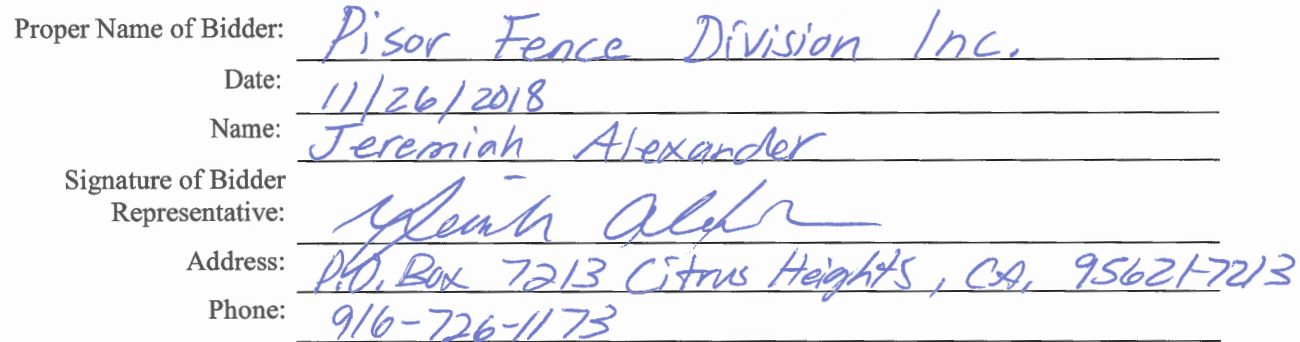 Proper Name of Bidder: Pisor Fence Division Inc.
Date: 11/26/2018
Name: Jeremiah Alexander
Signature of Bidder
Representative:
Address: P.O. Box 7213 Citrus Heights, CA, 95621-7213
Phone: 916-726-1173